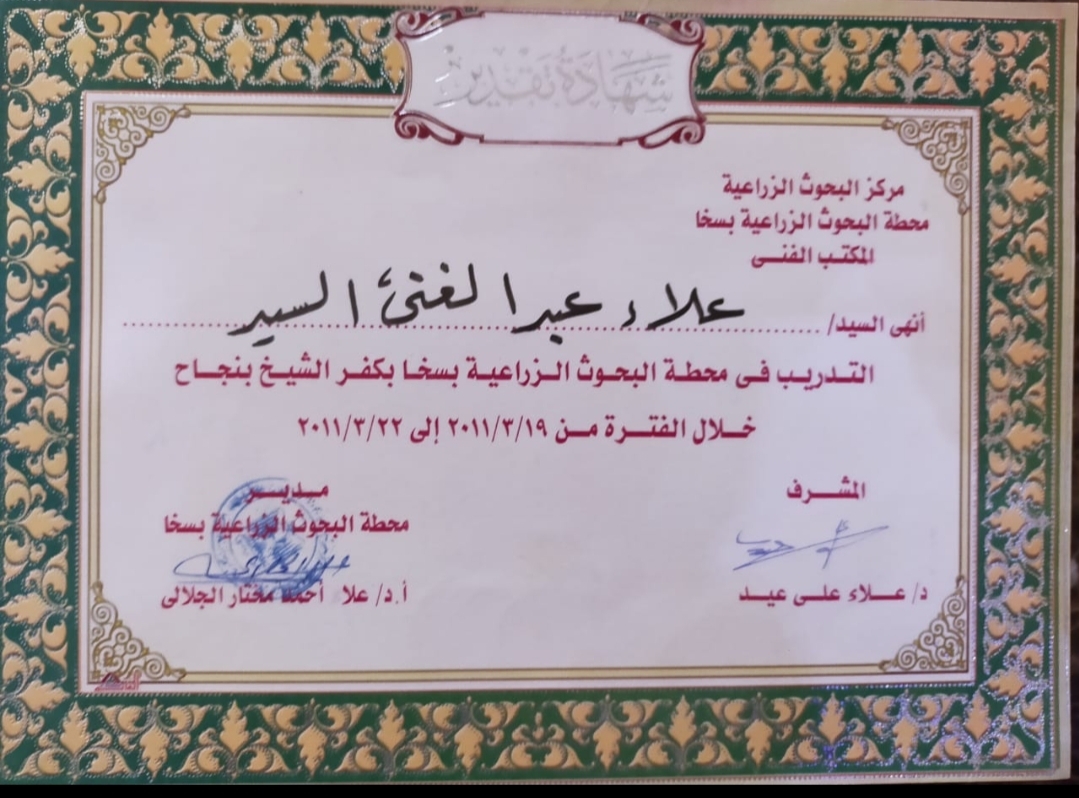 شهادة تقدير
مركز البحوث الزراعية
محطة البحوث الزراعية بسخا
المكتب الفنى
أنهى السيد/ علاء عبد الغنى السيد
التدريب فى محطة البحوث الزراعية بسخا بكفر الشيخ بنجاح
خلال الفترة من ٢٠١١/٣/١٩ إلى ٢٠١١/٣/٢٢
المشرف
د/ علاء على عيد
مدير
محطة البحوث الزراعية بسخا
أ.د/ علا احمد مختار الجلالى